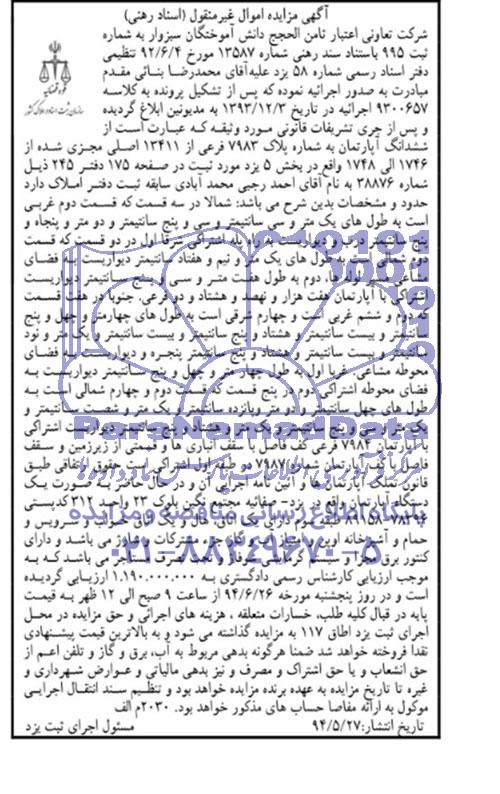 آگهی مزایده اموال غیرمنقول (اسناد رهنی)
شرکت تعاونی اعتبار ثامن الحجج دانش آموختگان سبزوار به شماره
ثبت ۹۹۵ باستناد سند رهنی شماره ۱۳۵۸۷ مورخ ۹۲/۶/۴ تنظیمی
دفتر اسناد رسمی شماره ۵۸ یزد علیه آقای محمدرضا بنائی مقدم
مبادرت به صدور اجرائیه نموده که پس از تشکیل پرونده به کلاسه
۹۳۰۰۶۵۷ اجرائیه در تاریخ ۱۳۹۳/۱۲/۳ به مدیونین ابلاغ گردیده
و پس از جری تشریفات قانونی مورد وثیقه که عبارت است از
ششدانگ آپارتمان به شماره پلاک ۷۹۸۳ فرعی از ۱۳۴۱۱ اصلی مجزی شده از
۱۷۴۶ الی ۱۷۴۸ واقع در بخش ۵ یزد مورد ثبت در صفحه ۱۷۵ دفتر ۲۴۵ ذیل
شماره ۳۸۸۷۶ به نام آقای احمد رجبی محمد آبادی سابقه ثبت دفتر املاک دارد
حدود و مشخصات بدین شرح می باشد: شمالا در سه قسمت که قسمت دوم غربی
است به طول های یک متر و سی سانتیمتر و سی و پنج سانتیمتر و دو متر و پنجاه و
پنج سانتیمتر درب و دیواریست به راه پله اشتراکی شرقا اول در دو قسمت که قسمت
دوم شمالی است به طول های یک متر و نیم و هفتاد سانتیمتر دیواریست به فضای
دوم به طول هفت متر و سی و پنج سانتیمتر دیواریست
اشتراکی با آپارتمان هفت هزار و نهصد و هشتاد و دو فرعی. جنوبا در هفت قسمت
که دوم و ششم غربی است و چهارم شرقی است به طول های چهارمتر و چهل و پنج
سانتیمتر و بیست سانتیمتر و هشتاد و پنج سانتیمتر و بیست سانتیمتر و یک متر و نود
سانتیمتر و بیست سانتیمتر و هشتاد و پنج سانتیمتر پنجره و دیواریست به فضای
محوطه مشاعی. غربا اول به طول چهار متر و چهل و پنج سانتیمتر دیواریست به
فضای محوطه اشتراکی دوم در پنج قسمت که قسمت دوم و چهارم شمالی است به
طول های چهل سانتیمتر و دو متر و پانزده سانتیمتر و یک متر و شصت سانتیمتر و
یک متر و سی و پنج سانتیمتر و یک متر و هشتاد و پنج سانتیمتر دیواریست اشتراکی
با آپارتمان ۷۹۸۴ فرعی کف فاصل با سقف انباری ها و قسمتی از زیرزمین و سقف
فاصل با کف آپارتمان شماره ۷۹۸۷ در طبقه اول اشتراکی است حقوق ارتفاقی طبق
قانون تملک آپارتمان ها و آئین نامه اجرائی آن و در حال حاضر به صورت یک
دستگاه آپارتمان واقع در یزد- صفائیه مجتمع نگین بلوک ۲۳ واحد ۳۱۲ کدپستی
۷۸۳۹۴-۸۹۱۵۸ طبقه سوم دارای یک اتاق، هال
حمام و آشپزخانه اوپن و امتیاز آب و گاز جزء مشترکات و شوفاژ می باشد و دارای
کنتور برق مجزا و سیستم گرمایشی شوفاژ و تحت تصرف مستاجر می باشد که به
موجب ارزیابی کارشناس رسمی دادگستری به ۱.۱۹۰.۰۰۰.۰۰۰ ارزیابی گردیده
است و در روز پنجشنبه مورخه ۹۴/۶/۲۶ از ساعت ۹ صبح الی ۱۲ ظهر به قیمت
پایه در قبال کلیه طلب، خسارات متعلقه ، هزینه های اجرائی و حق مزایده در محل
اجرای ثبت یزد اطاق ۱۱۷ به مزایده گذاشته می شود و به بالاترین قیمت پیشنهادی
نقدا فروخته خواهد شد ضمنا هرگونه بدهی مربوط به آب، برق و گاز و تلفن اعم از
حق انشعاب و یا حق اشتراک و مصرف و نیز بدهی مالیاتی و عوارض شهرداری و
غیره تا تاریخ مزایده به عهده برنده مزایده خواهد بود و تنظیم سند انتقال اجرایی
موکول به ارائه مفاصا حساب های مذکور خواهد بود. ۲۰۳۰م الف
تاریخ انتشار: ۹۴/۵/۲۷ مسئول اجرای ثبت یزد
قوه قضائیه
سازمان ثبت اسناد و املاک کشور
ParsNamadData
پایگاه اطلاع رسانی مناقصه و مزایده
۰۲۱-۸۸۳۴۹۶۷۰-۵